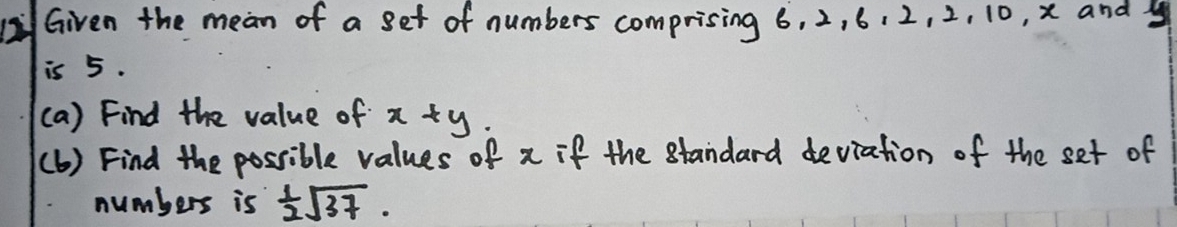 12. Given the mean of a set of numbers comprising 6, 2, 6, 2, 2, 10, x and y
is 5.
(a) Find the value of x + y.
(b) Find the possible values of x if the standard deviation of the set of
numbers is ½√37.